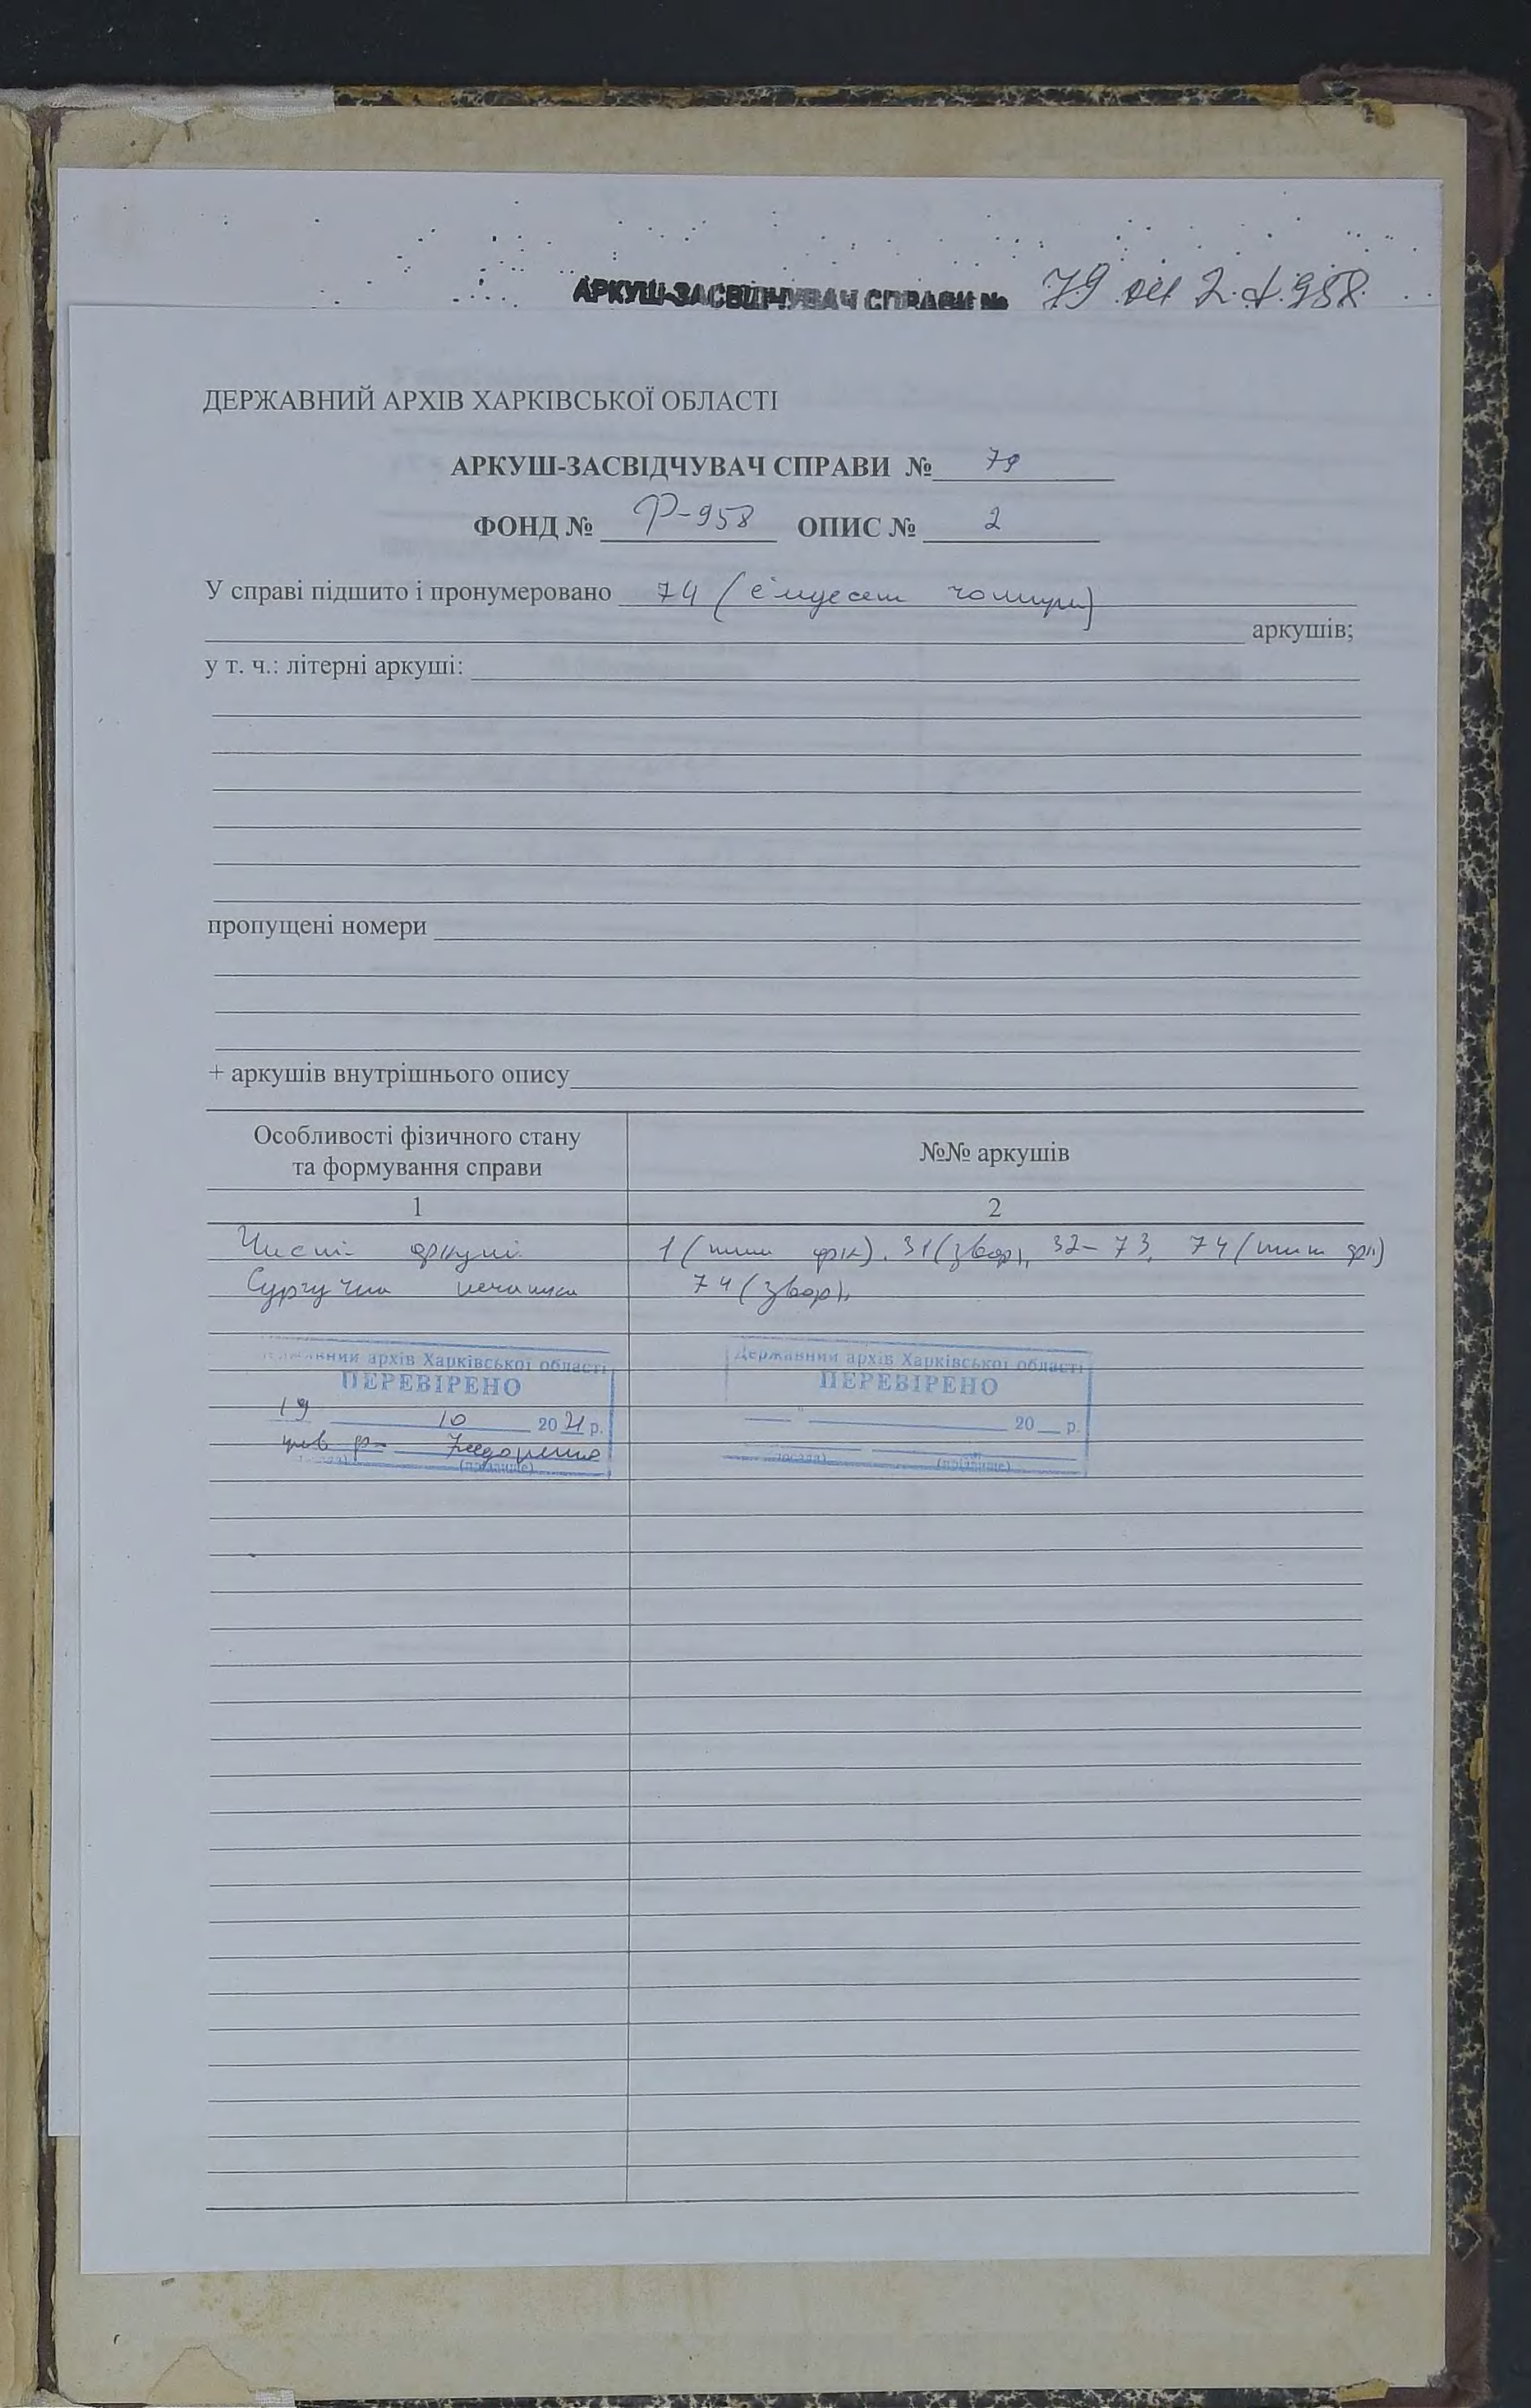 АРКУШ-ЗАСВІДЧУВАЧ СПРАВИ № 79 оп 2 ф. 958
ДЕРЖАВНИЙ АРХІВ ХАРКІВСЬКОЇ ОБЛАСТІ
АРКУШ-ЗАСВІДЧУВАЧ СПРАВИ № 79
ФОНД № Р-958 ОПИС № 2
У справі підшито і пронумеровано 74 (сімдесят чотири)
аркушів;
у т. ч.: літерні аркуші:
пропущені номери
+ аркушів внутрішнього опису
Особливості фізичного стану
та формування справи
№№ аркушів
1 2
Чисті аркуші 1 (тит арк), 31 (звор), 32-73, 74 (тит арк)
Сургучна печатка 74 (звор),
Державний архів Харківської області
ПЕРЕВІРЕНО
19 10 2021 р.
(посада) (прізвище)
Державний архів Харківської області
ПЕРЕВІРЕНО
" 20 р.
(посада) (прізвище)